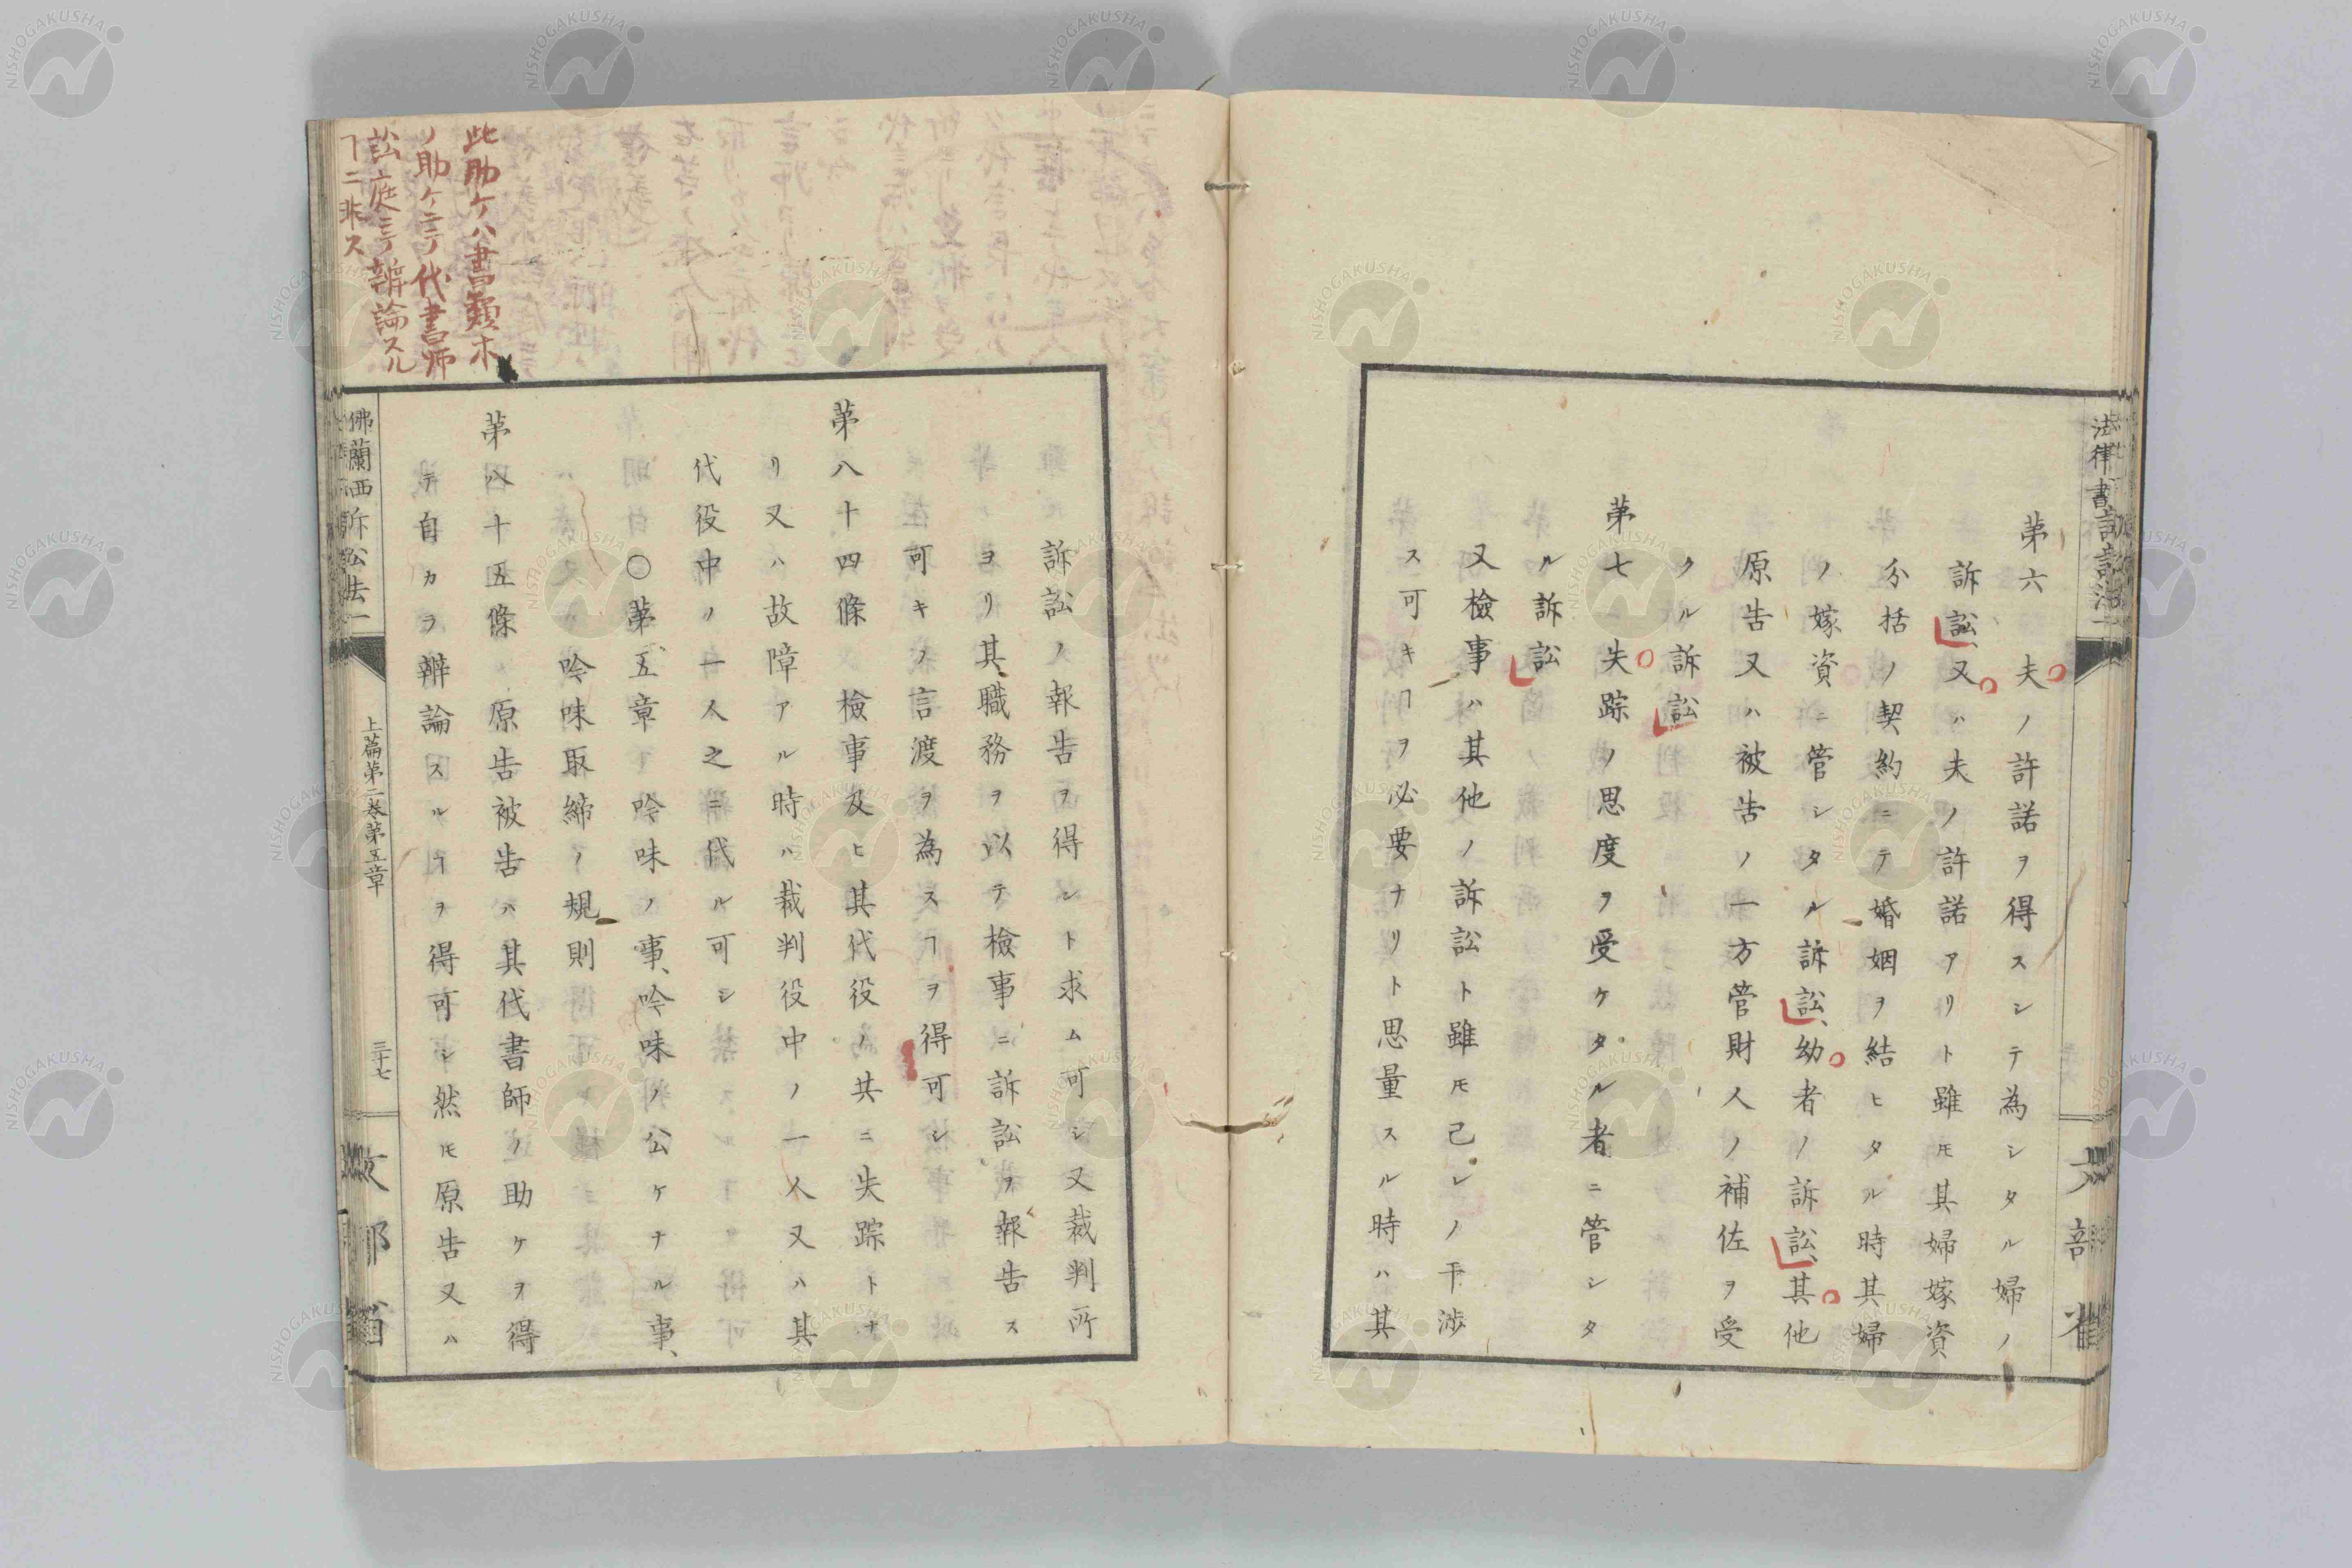 第六 夫ノ許諾ヲ得スシテ為シタル婦ノ
訴訟、又ハ夫ノ許諾アリト雖モ其婦嫁資
分括ノ契約ニテ婚姻ヲ結ヒタル時其婦
ノ嫁資ニ管シタル訴訟、幼者ノ訴訟、其他
原告又ハ被告ノ一方管財人ノ補佐ヲ受
クル訴訟
第七 失踪ノ思度ヲ受ケタル者ニ管シタ
ル訴訟
又檢事ハ其他ノ訴訟ト雖モ己レノ干渉
ス可キヿヲ必要ナリト思量スル時ハ其
訴訟ノ報告ヲ得ント求ム可シ又裁判所
ヨリ其職務ヲ以テ檢事ニ訴訟ヲ報告ス
可キノ言渡ヲ為スヿヲ得可シ
第八十四條 檢事及ヒ其代役ノ共ニ失踪トナ
リ又ハ故障アル時ハ裁判役中ノ一人又ハ其
代役中ノ一人之ニ代ル可シ
○第五章 吟味ノ事、吟味ノ公ケナル事、
吟味取締ノ規則
第八十五條 原告被告ハ其代書師ノ助ケヲ得
テ自カラ辨論スルヿヲ得可シ然モ原告又ハ
佛蘭西訴訟法一
上篇第二巻第五章
三十七
文部省
此助ケハ書類ホ
ノ助ケニテ代書師
訟庭ニテ辨論スル
ヿニ非ス
NISHOGAKUSHA